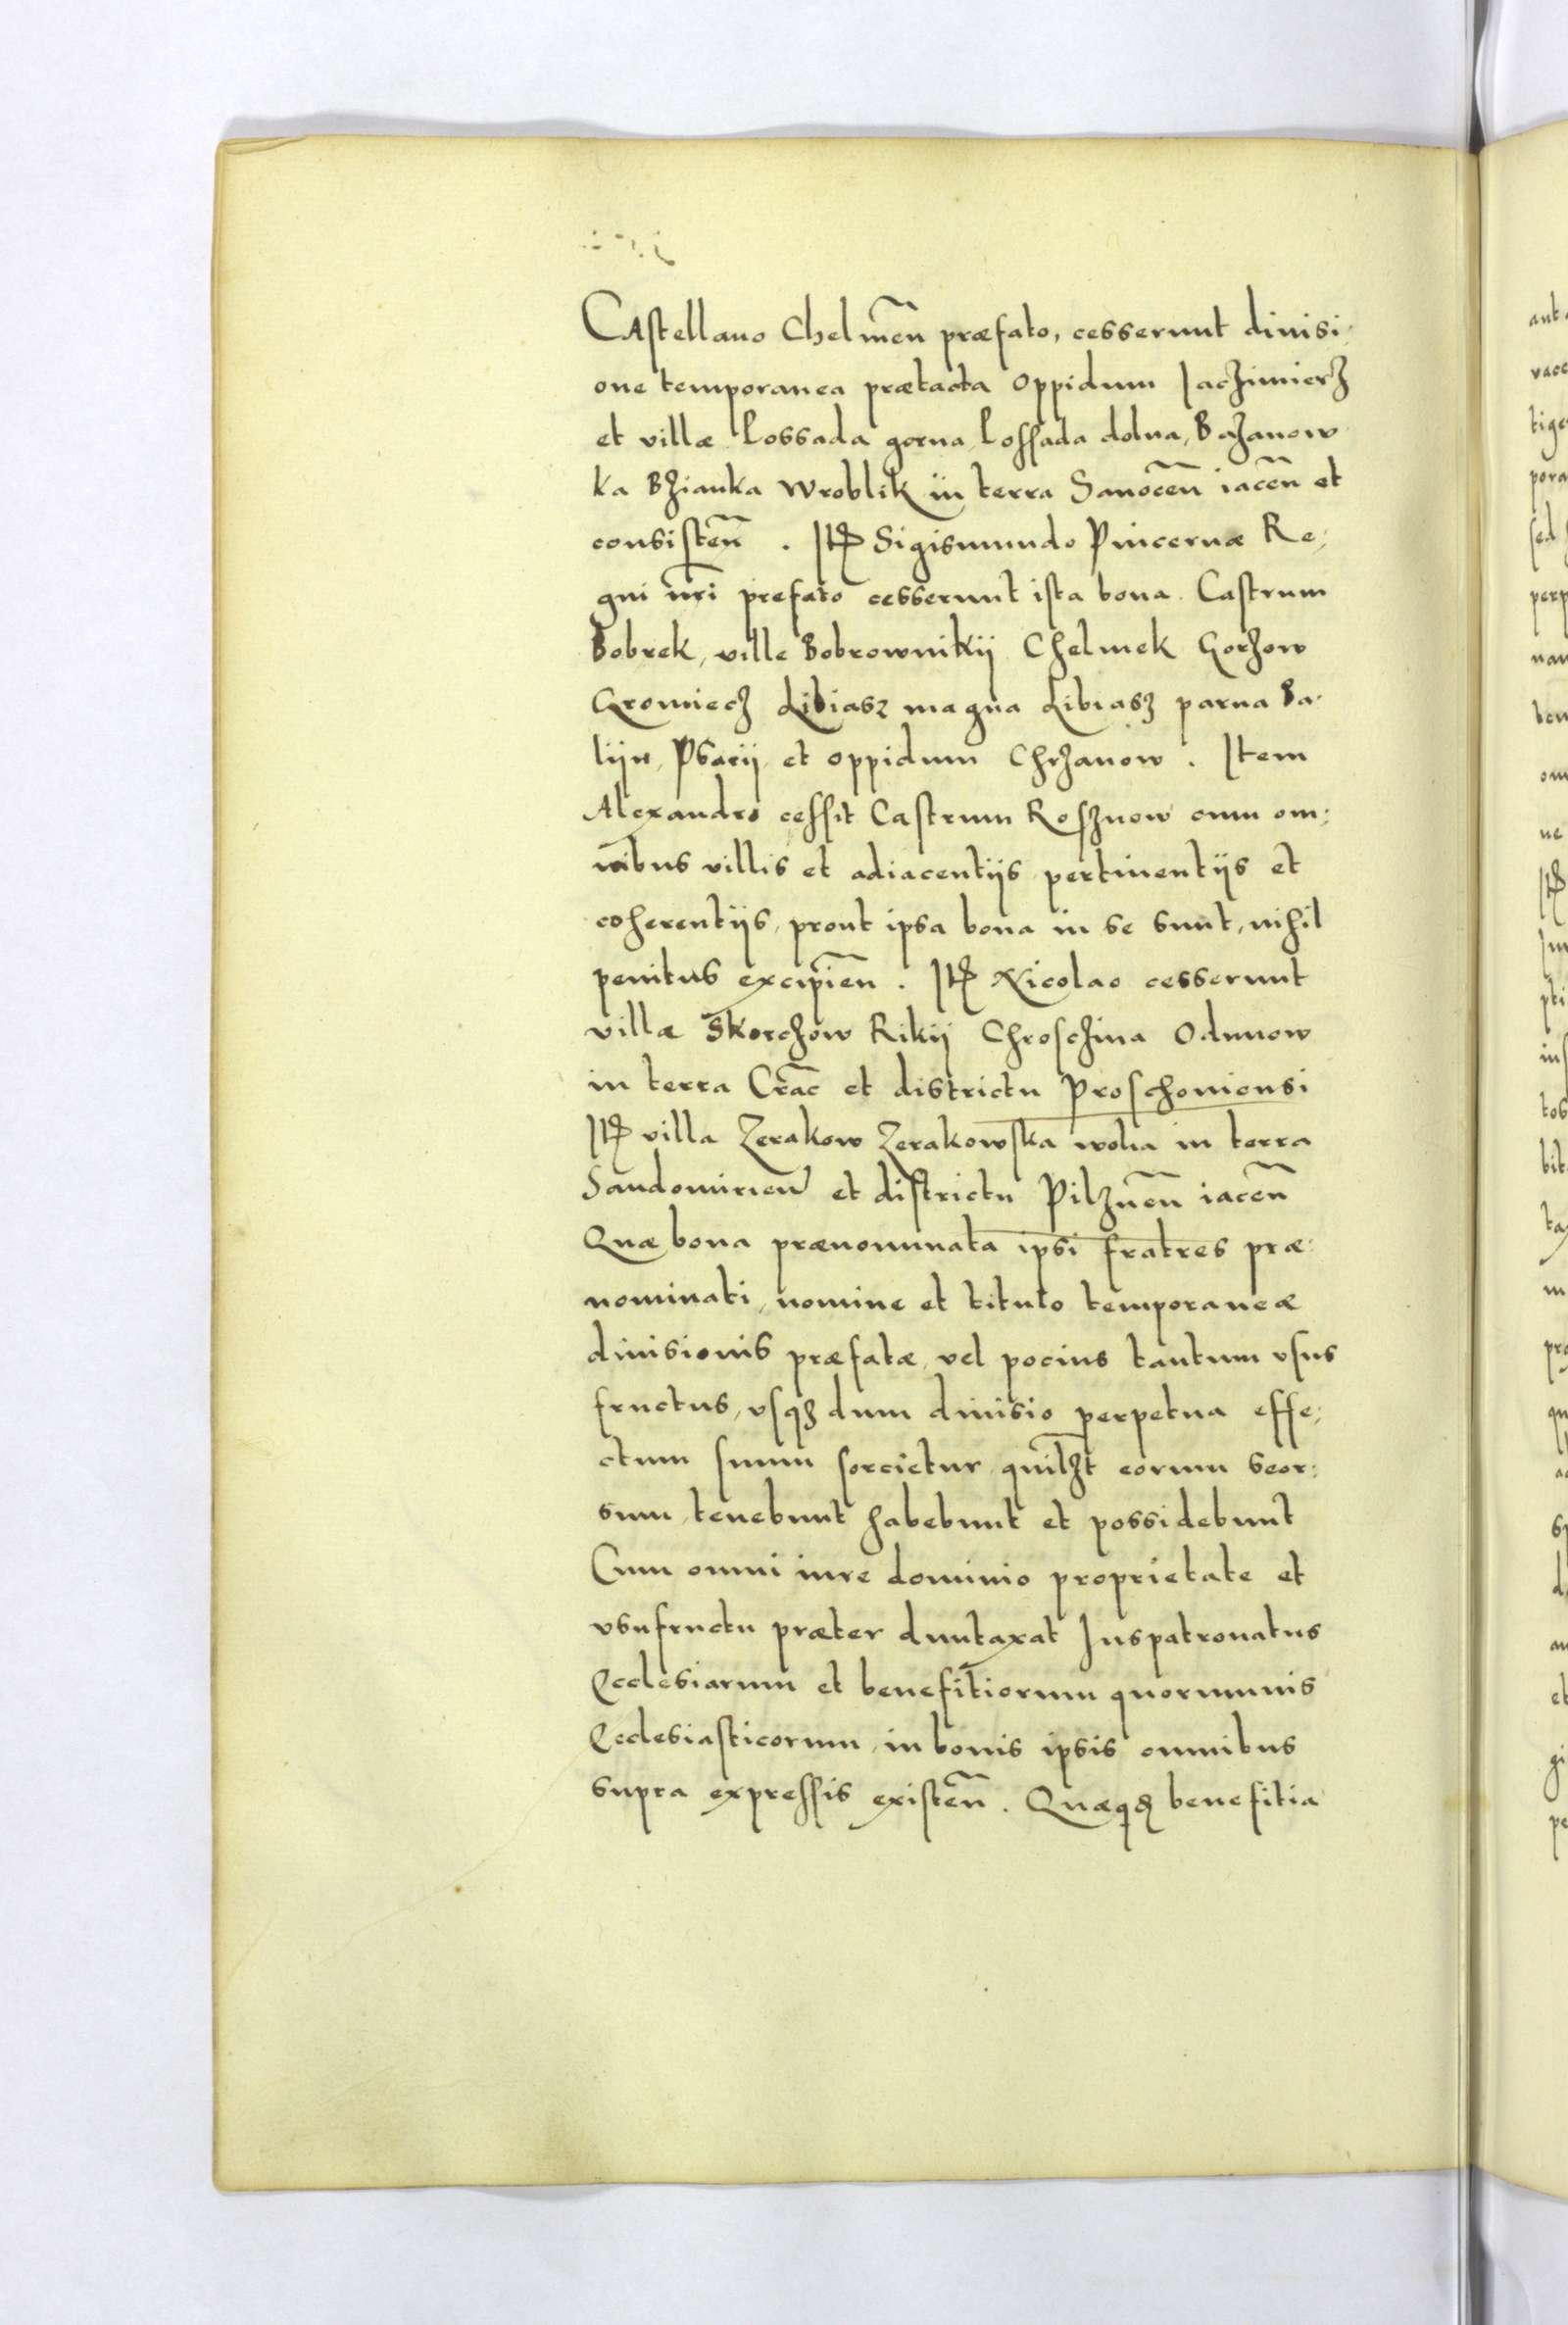 CAstellano Chelmen̄ præfato, cesserunt diuisi,
one temporanea prætacta oppidum Jaczimierz
et villæ Lossada gorna, Lossada dolna, Bażanow
ka Bzianka Wroblik in terra Sanoceñ iaceñ et
consisteñ . Itꝫ Sigismundo Pincernæ Re,
gni nr̄i prefato cesserunt ista bona. Castrum
Bobrek, ville Bobrownikij Chelmek Gorzow
Gromiecz Libiasz magna Libiasz parua Ba,
lijn, Psarij, et oppidum Chrzanow . Item
Alexandro cessit Castrum Rosznow cum om,
nibus villis et adiacentijs pertinentijs et
coherentijs, prout ipsa bona in se sunt, nihil
penitus excipieñ . Itꝫ Nicolao cesserunt
villæ Skorczow Rikij Chrosczina Odunow
in terra Crac̄ et districtu Proschouiensi
Itꝫ villa Zerakow Zerakowska wolia in terra
Sandomirieñ et districtu Pilzneñ iaceñ
Quæ bona prænominata ipsi fratres præ,
nominati, nomine et titulo temporaneæ
diuisionis præfatæ, vel pocius tantum vsus
fructus, vsqꝫ dum diuisio perpetua effe,
ctum suum sorcietur quilꝫt eorum seor,
sum, tenebunt habebunt et possidebunt
Cum omni iure dominio proprietate et
vsufructu præter duntaxat Juspatronatus
Ecclesiarum et benefitiorum quorumuis
Ecclesiasticorum, in bonis ipsis omnibus
supra expressis existeñ . Quæqꝫ benefitia